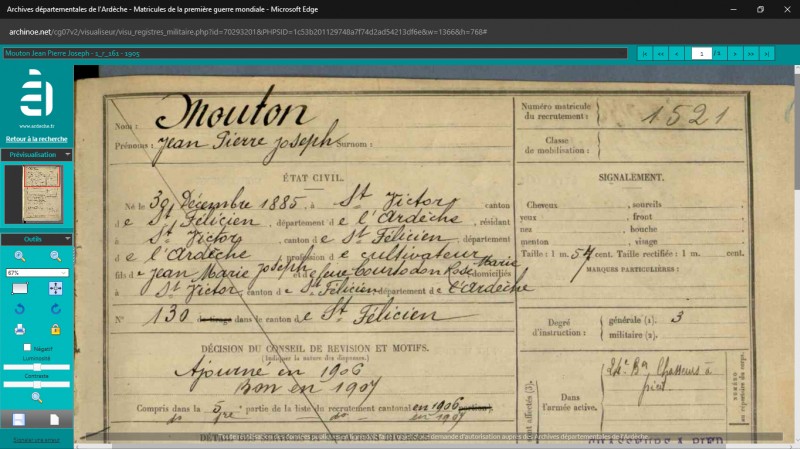 Archives départementales de l'Ardèche - Matricules de la première guerre mondiale - Microsoft Edge
archinoe.net/cg07v2/visualiseur/visu_registres_militaire.php?id=70293201&PHPSID=1c53b201129740a7f74d2ad54213df6e&w=1366&h=768#
Mouton Jean Pierre Joseph - 1_r_161 - 1905
1 / 2
www.ardeche.fr
Retour à la recherche
Prévisualisation
Outils
67%
Négatif
Luminosité
Contraste
Signaler une erreur
Nom : Mouton
Prénoms : Jean Pierre Joseph Surnom :
Numéro matricule du recrutement : 1521
Classe de mobilisation :
ÉTAT CIVIL.
Né le Décembre 1885, à St Victor canton
d e St Félicien, département d e l'Ardèche, résidant
à St Victor, canton d e St Félicien, département
d e l'Ardèche, profession d e cultivateur
fils d e Jean Marie Joseph et d e feue Courtodon Rose Marie domiciliés
à St Victor, canton d e St Félicien département de l'Ardèche
N° 130 de tirage dans le canton d e St Félicien
SIGNALEMENT.
Cheveux , sourcils
yeux , front
nez , bouche
menton , visage
Taille : 1 m. 54 cent. Taille rectifiée : 1 m. cent.
MARQUES PARTICULIÈRES :
DÉCISION DU CONSEIL DE REVISION ET MOTIFS.
(Indiquer la nature des dispenses.)
Ajourné en 1906
Bon en 1907
Compris dans la 5e partie de la liste du recrutement cantonal en 1906
do en 1907
Degré d'instruction : générale (1). 3
militaire (2).
Dans l'armée active.
24e Bon Chasseurs à pied
NUMÉRO au répertoire du corps.
CHASSEURS A PIED